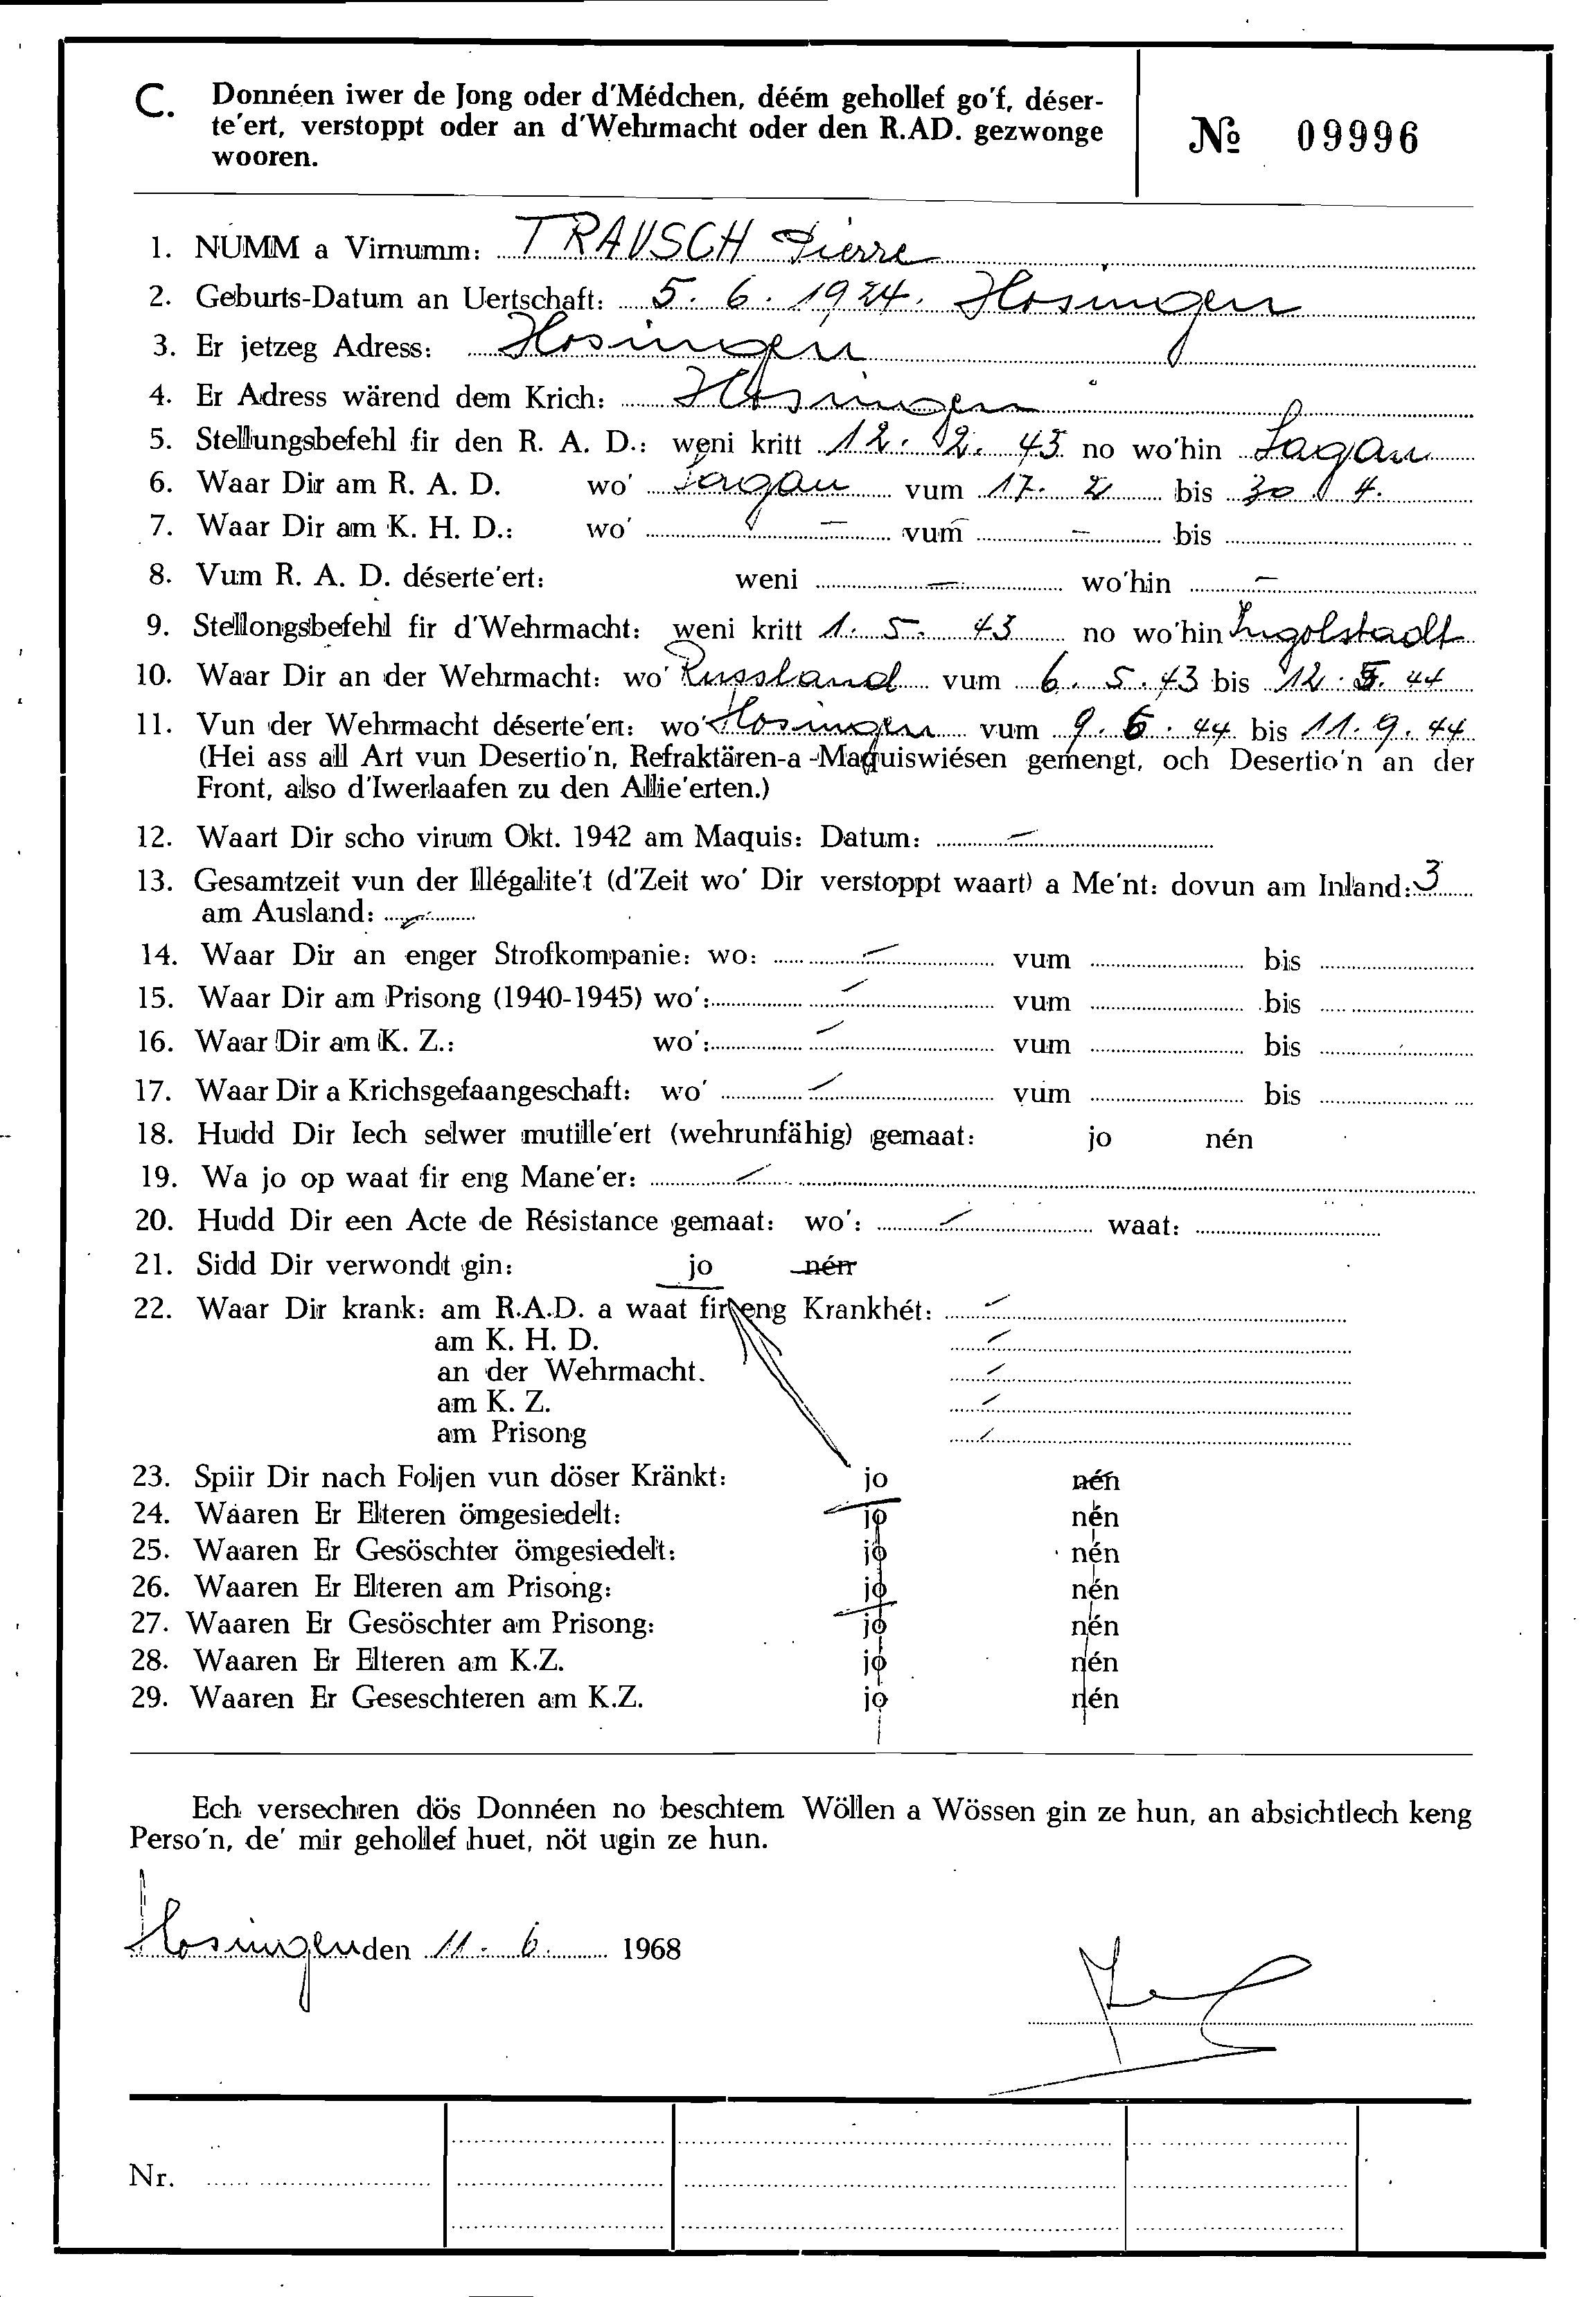 C. Donnéen iwer de Jong oder d'Médchen, déém gehollef go'f, déser-
te'ert, verstoppt oder an d'Wehrmacht oder den R.AD. gezwonge
wooren.
№ 09996
1. NUMM a Virnumm: TRAUSCH Pierre
2. Geburts-Datum an Uertschaft: 5. 6. 1924. Hosingen
3. Er jetzeg Adress: Hosingen
4. Er Adress wärend dem Krich: Hosingen
5. Stellungsbefehl fir den R. A. D.: weni kritt 12. 2. 43 no wo'hin Sagan
6. Waar Dir am R. A. D. wo' Sagan vum 17. 2 bis 30. 4.
7. Waar Dir am K. H. D.: wo' — vum — bis
8. Vum R. A. D. déserte'ert: weni — wo'hin —
9. Stellongsbefehl fir d'Wehrmacht: weni kritt 1. 5. 43 no wo'hin Ingolstadt
10. Waar Dir an der Wehrmacht: wo' Russland vum 6. 5. 43 bis 12. 5. 44
11. Vun der Wehrmacht déserte'ert: wo' Hosingen vum 9. 6. 44 bis 11. 9. 44
(Hei ass all Art vun Desertio'n, Refraktären-a -Maquiswiésen gemengt, och Desertio'n an der
Front, also d'Iwerlaafen zu den Allie'erten.)
12. Waart Dir scho virum Okt. 1942 am Maquis: Datum: —
13. Gesamtzeit vun der Illégalite't (d'Zeit wo' Dir verstoppt waart) a Me'nt: dovun am Inland: 3
am Ausland: —
14. Waar Dir an enger Strofkompanie: wo: — vum bis
15. Waar Dir am Prisong (1940-1945) wo': — vum bis
16. Waar Dir am K. Z.: wo': — vum bis
17. Waar Dir a Krichsgefaangeschaft: wo' — vum bis
18. Hudd Dir Iech selwer mutille'ert (wehrunfähig) gemaat: jo nén
19. Wa jo op waat fir eng Mane'er: —
20. Hudd Dir een Acte de Résistance gemaat: wo': — waat:
21. Sidd Dir verwondt gin: jo nén
22. Waar Dir krank: am R.A.D. a waat fir eng Krankhét: —
am K. H. D. —
an der Wehrmacht. —
am K. Z. —
am Prisong —
23. Spiir Dir nach Foljen vun döser Kränkt: jo nén
24. Waaren Er Elteren ömgesiedelt: jo nén
25. Waaren Er Gesöschter ömgesiedelt: jo nén
26. Waaren Er Elteren am Prisong: jo nén
27. Waaren Er Gesöschter am Prisong: jo nén
28. Waaren Er Elteren am K.Z. jo nén
29. Waaren Er Geseschteren am K.Z. jo nén
Ech versechren dös Donnéen no beschtem Wöllen a Wössen gin ze hun, an absichtlech keng
Perso'n, de' mir gehollef huet, nöt ugin ze hun.
Hosingen den 11. 6. 1968
Nr.